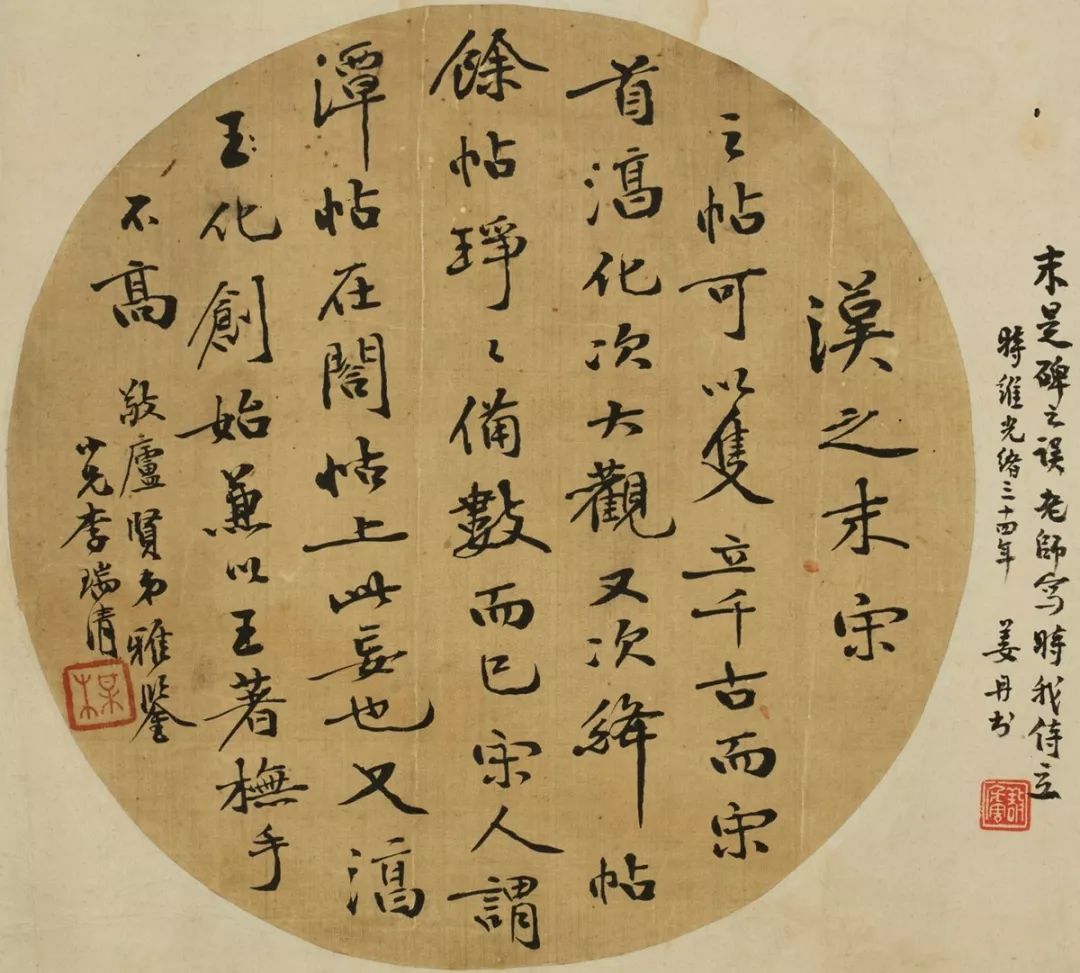 末是碑之误老師写時我侍立
時維光緒三十四年 姜丹书
漢之末宋
之帖可以隻立千古而宋
首湻化次大觀又次絳帖
餘帖琤〻備數而已宋人謂
潭帖在閣帖上此妄也又湻
玉化創始兼以王著橅手
不高 敬廬賢弟雅鑒
小兄李瑞清
楳